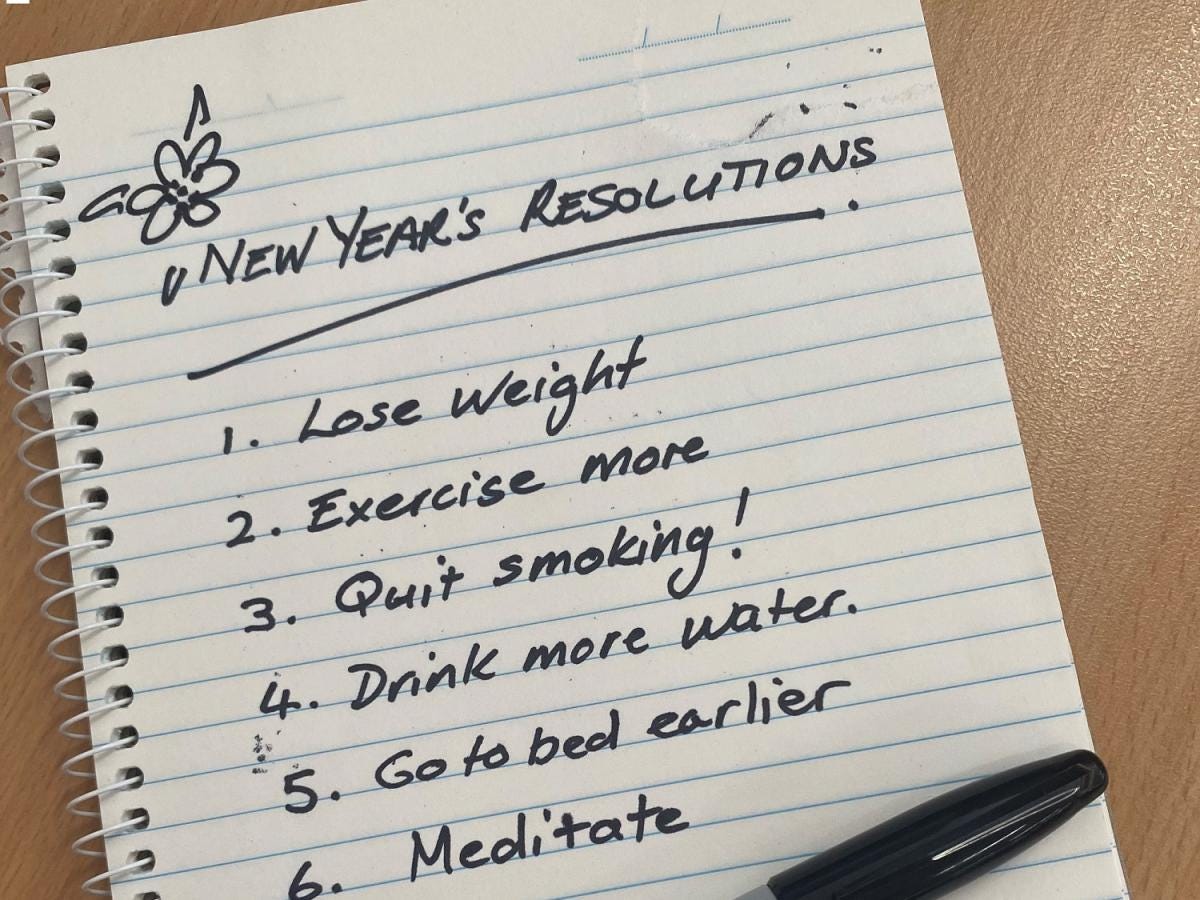 "NEW YEAR'S RESOLUTIONS
1. Lose weight
2. Exercise more
3. Quit smoking!
4. Drink more water.
5. Go to bed earlier
6. Meditate